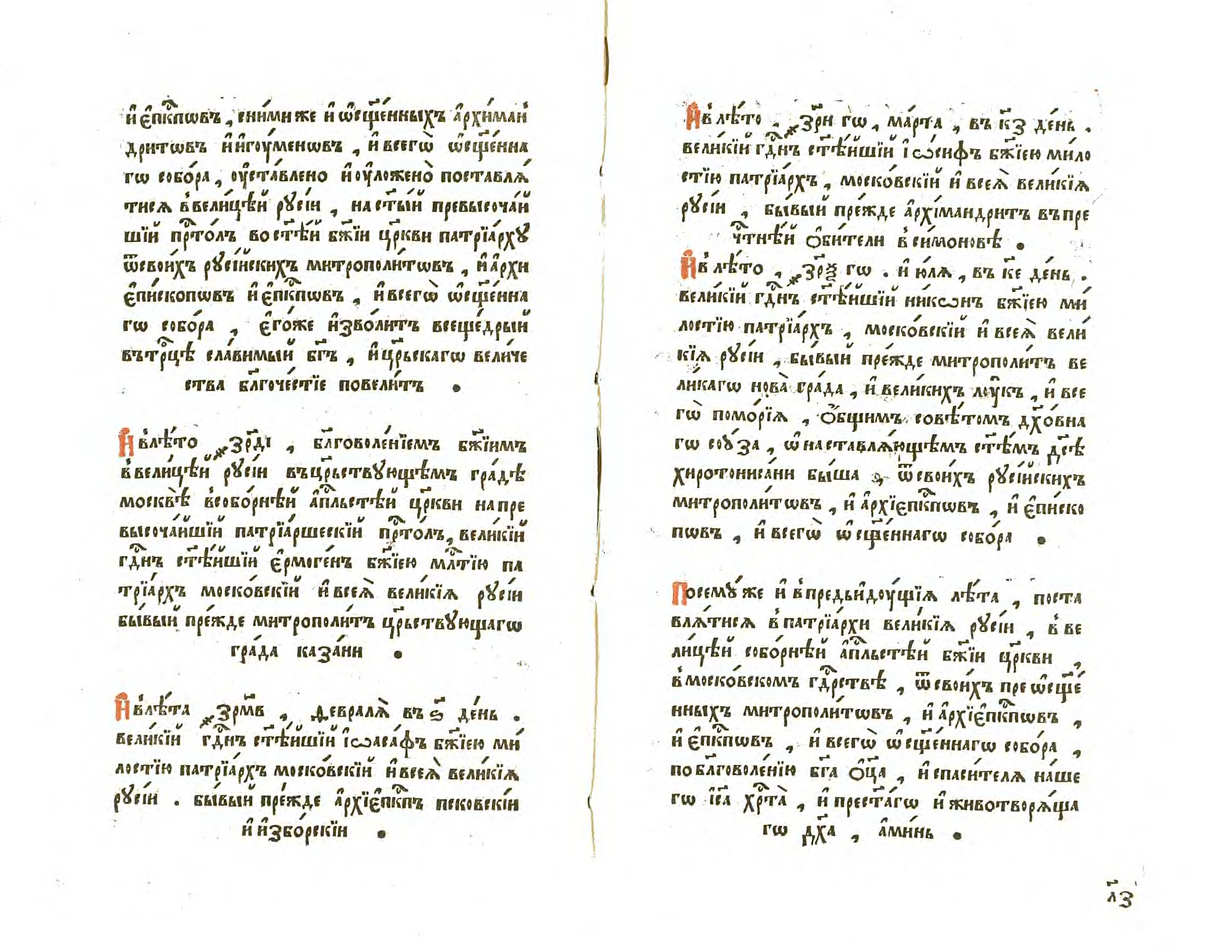 и҆ є҆пⷭ҇кпѡвъ , сними же и҆ ѡ҆сщ҃е́нныхъ а҆рхиман
дритѡвъ и҆ и҆гоу́менѡвъ , и҆ всегѡ̀ ѡ҆сщ҃е́нна
гѡ собо́ра , ᲂу҆ста́влено и҆ ᲂу҆ло́жено̀ поставлѧ́
тисѧ в вели́цѣй рꙋсі́и , на ст҃ы́й превысоча́й
шїй прⷭ҇то́лъ во ст҃ѣ́й бж҃їи цр҃кви патрїа́рхꙋ
ѿ свои́хъ рꙋсі́йскихъ митрополи́тѡвъ , и҆ а҆рхи
є҆пи́скопѡвъ и҆ є҆пⷭ҇кпѡвъ , и҆ всегѡ̀ ѡ҆сщ҃е́нна
гѡ собо́ра , є҆го́же и҆зво́литъ всеще́дрый
въ трⷪ҇цѣ сла́вимый бг҃ъ , и҆ цр҃ьскагѡ вели́че
ства бл҃гоче́стїе повели́тъ .
И҆ в лѣ́то ҂зр҃ді , бл҃говоле́нїемъ бж҃їимъ
в вели́цѣй рꙋсі́и въ цр҃ьствꙋющѣмъ гра́дѣ
москвѣ̀ в собо́рнѣй а҆пⷭ҇льстѣй цр҃кви на пре
высоча́йшїй патрїа́ршескїй прⷭ҇то́лъ, вели́кїй
гдⷭ҇нъ ст҃ѣ́йшїй є҆рмоге́нъ бж҃їею млⷭ҇тїю па
трїа́рхъ моско́вскїй и҆ всеѧ̀ вели́кїѧ рꙋсі́и
бы́вый пре́жде митрополи́тъ цр҃ьствꙋющагѡ
гра́да каза́ни .
И҆ в лѣ́та ҂зр҃мв , февралѧ̀ въ ѕ҃ де́нь .
вели́кїй гдⷭ҇нъ ст҃ѣ́йшїй і҆ѡаса́фъ бж҃їею ми́
лостїю патрїа́рхъ моско́вскїй и҆ всеѧ̀ вели́кїѧ
рꙋсі́и . бы́вый пре́жде а҆рхїє҆пⷭ҇кпъ пско́вскїи
и҆ и҆збо́рскїи .
И҆ в лѣ́то , ҂зр҃н гѡ , ма́рта , въ к҃з де́нь .
вели́кїй гдⷭ҇нъ ст҃ѣ́йшїй і҆ѡ́сифъ бж҃їею мило
стїю патрїа́рхъ , моско́вскїй и҆ всеѧ̀ вели́кїѧ
рꙋсі́и , бы́вый пре́жде а҆рхїмандри́тъ въ пре
чⷭ҇тнѣ́й ѻ҆би́тели в си́моновѣ .
И҆ в лѣ́то , ҂зр҃ѯ гѡ . и҆ю́лѧ , въ к҃е де́нь .
вели́кїй гдⷭ҇нъ ст҃ѣ́йшїй ни́кѡнъ бж҃їею ми́
лостїю патрїа́рхъ , моско́вскїй и҆ всеѧ̀ вели
кїѧ рꙋсі́и , бы́вый пре́жде митрополи́тъ ве
ли́кагѡ нова̀ гра́да , и҆ вели́кихъ лꙋ́къ , и҆ все
гѡ̀ помо́рїѧ , ѻ҆́бщимъ совѣ́томъ дх҃о́вна
гѡ сою́за , ѡ҆ наставлѧ́ющѣмъ ст҃ѣ́мъ дс҃ѣ
хиротони́сани бы́ша , ѿ свои́хъ рꙋсі́йскихъ
митрополи́тѡвъ , и҆ а҆рхїє҆пⷭ҇кпѡвъ , и҆ є҆пи́ско
пѡвъ , и҆ всегѡ̀ ѡ҆сщ҃е́ннагѡ собо́ра .
Посемꙋ́ же и҆ в предьидоу́щїѧ лѣ́та , поста
влѧ́тисѧ в патрїа́рхи вели́кїѧ рꙋсі́и , в ве
ли́цѣй собо́рнѣй а҆пⷭ҇льстѣй бж҃їи цр҃кви ,
в моско́вскомъ гдⷭ҇рствѣ , ѿ свои́хъ преѡсщ҃е́
нныхъ митрополи́тѡвъ , и҆ а҆рхїє҆пⷭ҇кпѡвъ ,
и҆ є҆пⷭ҇кпѡвъ , и҆ всегѡ̀ ѡ҆сщ҃е́ннагѡ собо́ра ,
по бл҃говоле́нїю бг҃а ѻ҆ц҃а̀ , и҆ спаси́телѧ на́ше
гѡ і҆с҃а хрⷭ҇та̀ , и҆ прест҃а́гѡ и҆ животворѧ́ща
гѡ дх҃а , а҆ми́нь .
л҃з